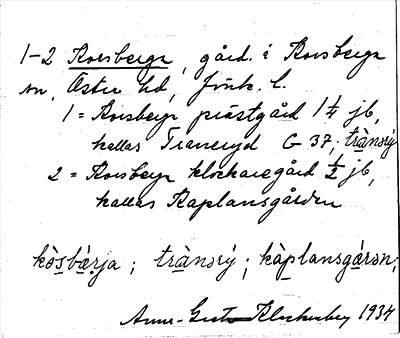 1-2 Korsberga, gård. i Korsberga
sn, Östra hd, Jönk. l.
1 = Korsberga prästgård 1 1/4 jb,
kallas Traneryd G 37; trànrý
2 = Korsberga klockaregård 1/2 jb,
kallas Kaplansgården
kòsbæ̀rja ; trànrý ; kàplansgárən;
Anna-Greta Klockerberg 1934